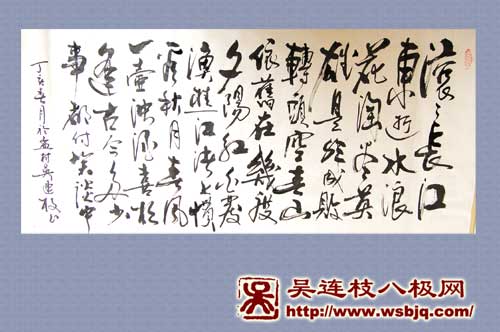 滚々长江
東逝水浪
花淘尽英
雄是非成敗
轉頭空青山
依舊在幾度
夕陽红白髮
漁樵江渚上慣
看秋月春風
一壺浊酒喜相
逢古今多少
事都付笑談中
丁亥春月於孟村吴连枝书
吴连枝八极网
http://www.wsbjq.com/